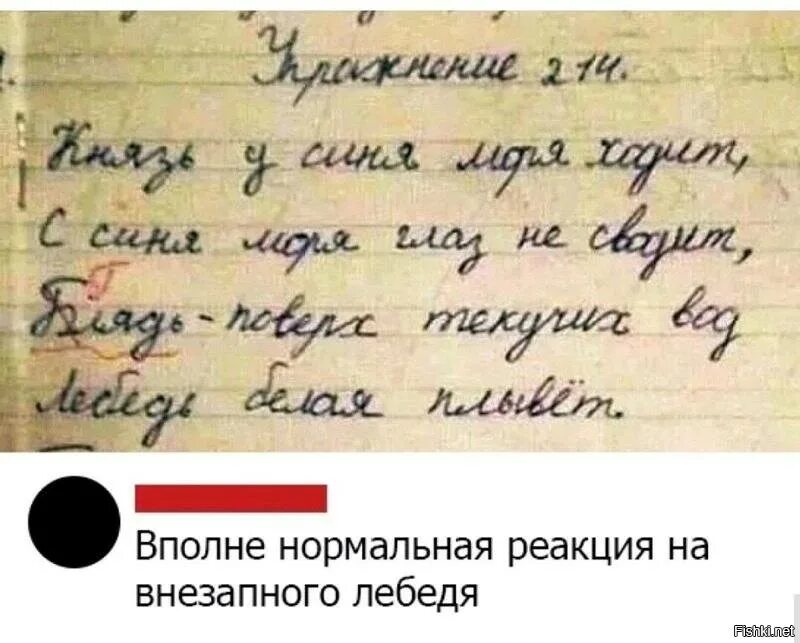 Упражнение 214.
Князь у синя моря ходит,
С синя моря глаз не сводит,
Г
Блядь - поверх текучих вод
Лебедь белая плывёт.
Вполне нормальная реакция на
внезапного лебедя
Fishki.net